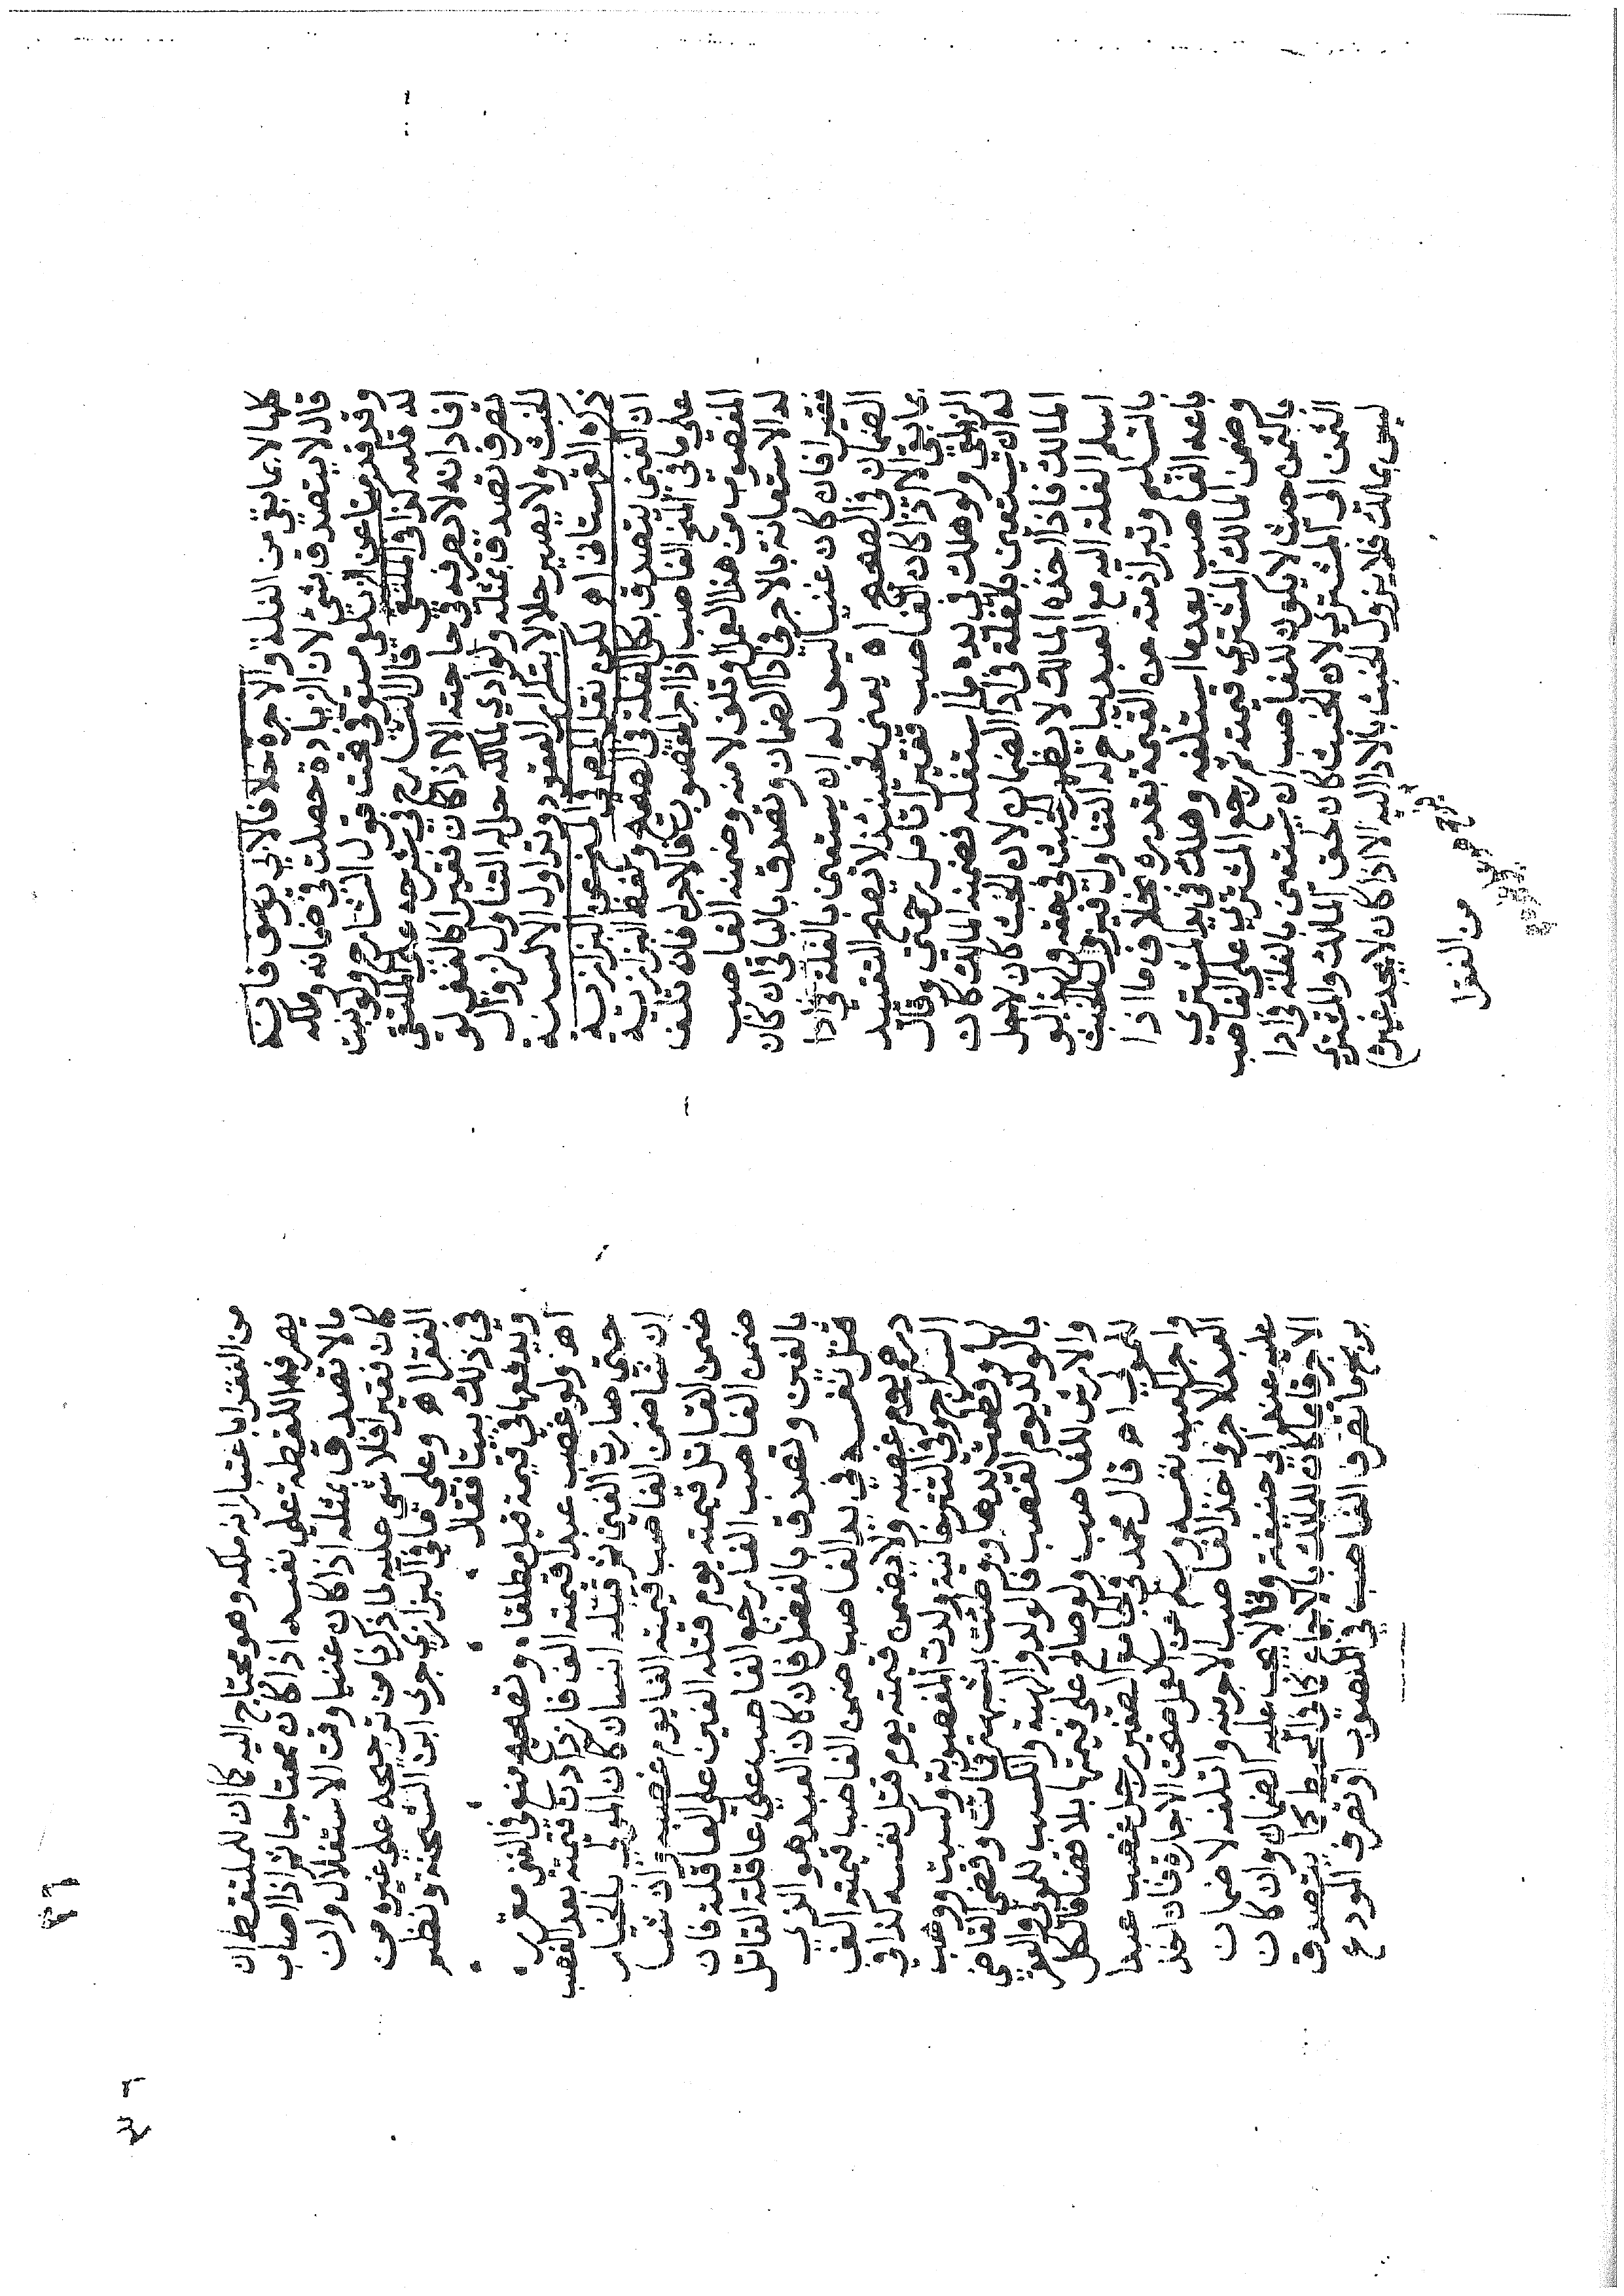 كلها لا بما بقي من الغلة والاجرة خلافا لابي يوسف فانه
قال لا يتصدق بشي لان الزيادة حصلت في ضمانه وملكه
وقد قدمنا عن ان الكل مستوفي تحت قول الشارح ولو بنيت
له مثله كذا في الملتقي قال الشارح في شرحه علي الملتقي
افاد انه لا يصرفه في حاجته الا اذا كان فقيرا كالغني لو
تصرف تصدق بمثله ولو ادي لمالكه حل له التناول لزوال
الخبث ولا يصير حلالا بتكرار العقود وتداول الالسنة
ذكره القهستاني اه لكن نقل المص في المنح عن البزازية
ان الغني يتصدق بكل الغلة في الصحيح ولفظ البزازية
علي ما في المنح الغاصب اذا اجر المغصوب فالاجر له فان تلف
المغصوب من هذا العمل او تلف لا منه وضمنه الغاصب
له الاستعانة بالاجر في ادا الضمان وتصدق بالباقي ان كان
فقيرا فان كان غنيا ليس له ان يستعين بالغلة في ادا
الضمان في الصحيح اه يعني فحينئذ لا يصح التقييد
بما بقي الا اذا كان الغاصب فقيرا تامل رحمتي وقال
الزيلعي ولو هلك في يده ما استغله فضمنه المالك كان
له ان يستعين بالغلة في ادا الضمان لان الخبث كان لاجل
المالك فاذا اخذه المالك لا يظهر الخبث في حقه ولهذا لو
اسلم الغلة اليه مع العبد يباح له التناول فيزول الخبث
بالتسليم وتبرا ذمته عن القيمة بقدره بخلاف ما اذا
باعه الغاصب بعد ما استغله وهلك في يد المشتري
وضمن المالك المشتري قيمته ثم رجع المشتري علي الغاصب
بالثمن حيث لا يكون للغاصب ان يستعين بالغلة في ادا
الثمن الي المشتري لان الخبث كان لحق المالك والمشتري
ليس بمالك فلا يزول الخبث بالادا اليه الا اذا كان لا يجد غيره
من الفقرا
من الفقرا باعتبار انه ملكه وهو محتاج اليه كما ان للملتقط ان
يصرف اللقطة علي نفسه اذا كان محتاجا ثم اذا اصاب
مالا تصدق بمثله اذا كان غنيا وقت الاستغلال وان
كان فقيرا فلا شي عليه لما ذكرنا من ترجيحه علي غيره من
الفقرا اه وعلي ما في البزازي جري ابن الشحنة ونظم
في ذلك بيتا فقال
ويدفعها في قيمة قيل مطلقا وتصحيح منع في الغني مقرر
اهـ ولو غصب عبدا قيمته الف فازدادت قيمته بعد الغصب
حتي صارت الفين ثم قتله انسان كان المولي بالخيار
ان شا ضمن الغاصب قيمته الفا يوم غصبه وان شا
ضمن القاتل قيمته يوم قتله الفين علي العاقلة فان
ضمن الغاصب الفا رجع الغاصب علي عاقلة القاتل
بالفين وتصدق بالفضل فان كان العبد هو الذي
قتل نفسه في يد الغاصب ضمن الغاصب قيمته الف
درهم يوم غصبه ولا يضمن قيمته يوم قتل نفسه كذا في
السراج وفي التترخانية ولدت المغصوبة وكسبت ووهب
لها وقطعت يدها ووطئت بشبهة فماتت وقضي القاضي
بالولد يوم الغصب فالولد والهبة والكسب للمولي والعقر
والارش للغاصب ولو صالح علي قيمتها بلا قضا فالكل
للمولي اه قال محمد في الجامع الصغير رجل غصب عبدا
واجر العبد نفسه وسلم عن العمل صحت الاجارة فان اخذ
العبد الاجر واخذ الغاصب الاجر منه واتلفه لا ضمان
عليه عند ابي حنيفة وقالا يجب عليه الضمان وان كان
الاجر قائما كان للمالك بالاجماع كذا في المحيط كما يتصدق
بربح ما تصرف الغاصب في المغصوب او تصرف المودع